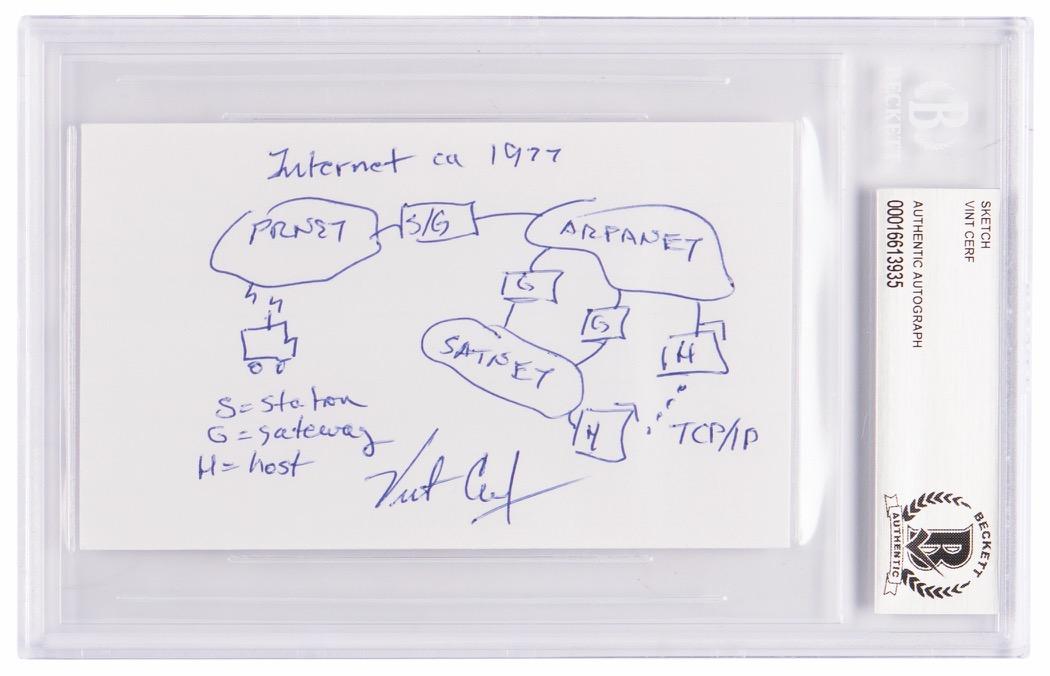 Internet ca 1977
PRNET
S/G
ARPANET
G
G
SATNET
H
H
TCP/IP
S = station
G = gateway
H = host
Vint Cerf
BECKETT
SKETCH
VINT CERF
AUTHENTIC AUTOGRAPH
00016613935
BECKETT
AUTHENTIC